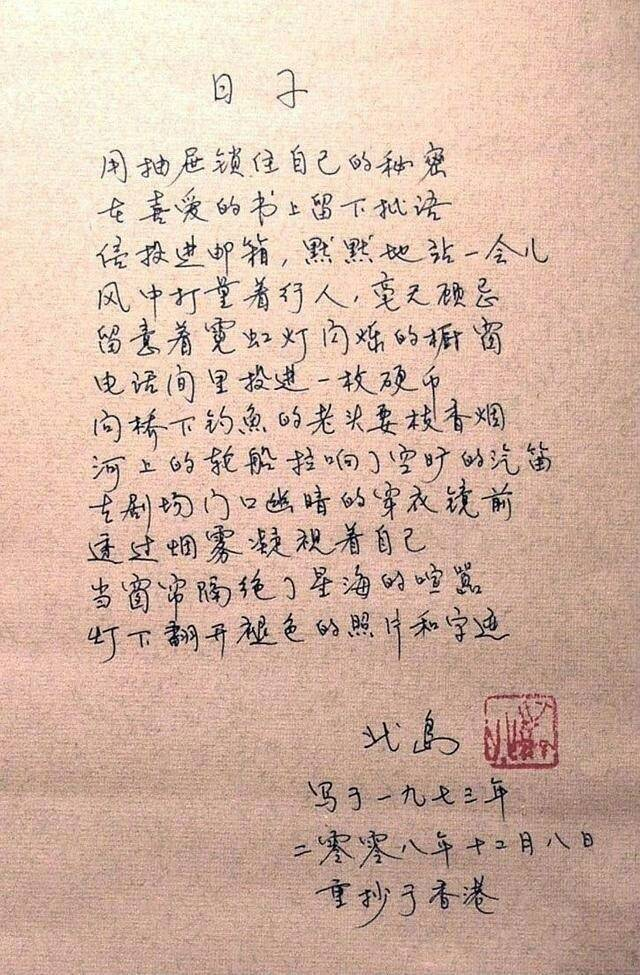 日子
用抽屉锁住自己的秘密
在喜爱的书上留下批语
信投进邮箱，默默地站一会儿
风中打量着行人，毫无顾忌
留意着霓虹灯闪烁的橱窗
电话间里投进一枚硬币
向桥下钓魚的老头要枝香烟
河上的轮船拉响了空旷的汽笛
在剧场门口幽暗的穿衣镜前
透过烟雾凝视着自己
当窗帘隔绝了星海的喧嚣
灯下翻开褪色的照片和字迹
北島
写于一九七三年
二零零八年十二月八日
重抄于香港